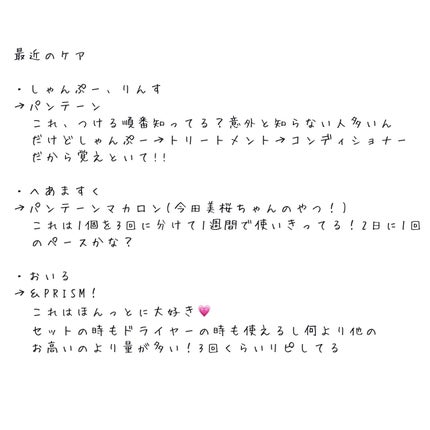 最近のケア
・しゃんぷー、りんす
→パンテーン
これ、つける順番知ってる？意外と知らない人多いん
だけどしゃんぷー→トリートメント→コンディショナー
だから覚えといて!!
・へあますく
→パンテーンマカロン(今田美桜ちゃんのやつ！)
これは1個を3回に分けて1週間で使いきってる！2日に1回
のペースかな？
・おいる
→&PRISM！
これはほんっとに大好き💗
セットの時もドライヤーの時も使えるし何より他の
お高いのより量が多い！3回くらいリピしてる